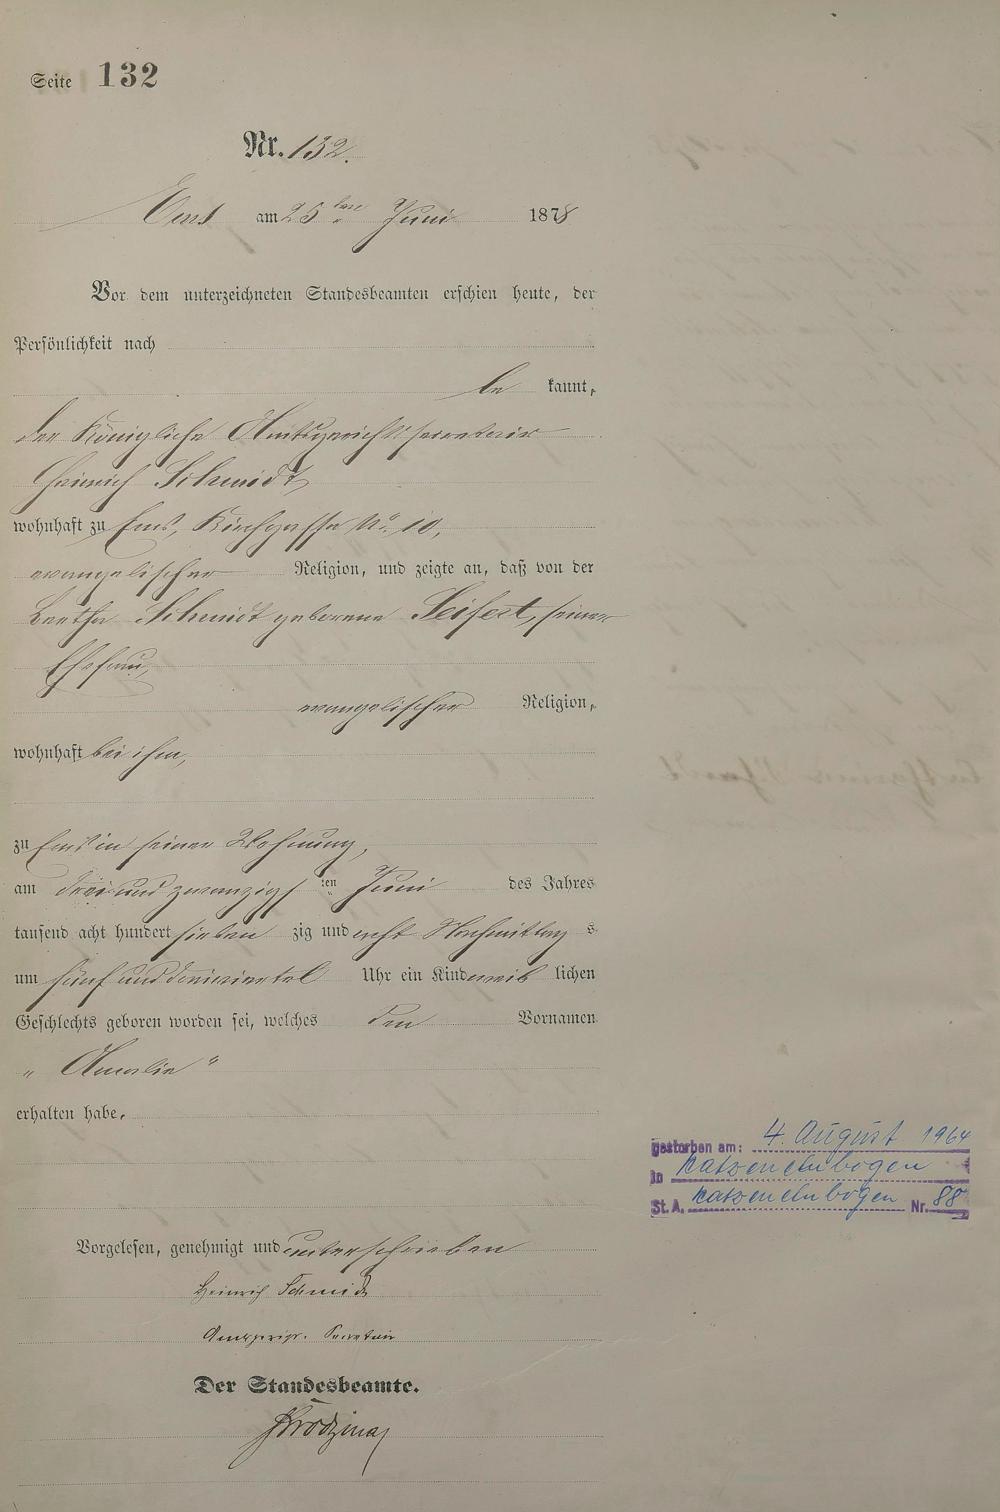 Seite 132
Nr. 132.
Ems am 25ten Juni 1878
Vor dem unterzeichneten Standesbeamten erschien heute, der
Persönlichkeit nach
be kannt,
der Königliche Amtsgerichtssecretair
Heinrich Schmidt,
wohnhaft zu Ems, Kirchgasse No. 10,
evangelischer Religion, und zeigte an, daß von der
Bertha Schmidt geborene Seifert, seiner
Ehefrau,
evangelischer Religion,
wohnhaft bei ihm,
zu Ems in seiner Wohnung,
am drei und zwanzigsten Juni des Jahres
tausend acht hundert sieben zig und acht Nachmittag s
um fünf und dreiviertel Uhr ein Kind weib lichen
Geschlechts geboren worden sei, welches den Vornamen
„ Amalie "
erhalten habe.
gestorben am: 4. August 1964
in Katzenelnbogen
St. A. Katzenelnbogen Nr. 88
Vorgelesen, genehmigt und unterschrieben
Heinrich Schmidt
Amtsgerichts. Secretair
Der Standesbeamte.